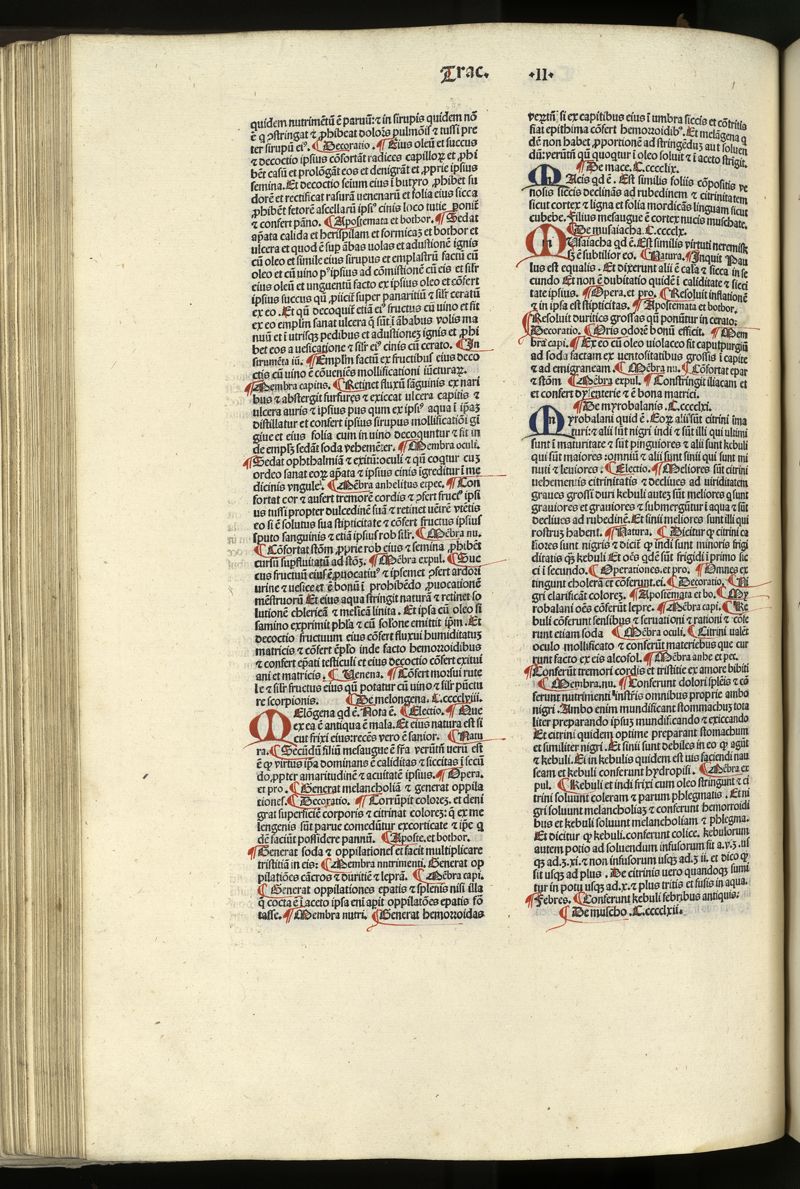 Trac. .II.
quidem nutrimẽtũ ẽ paruũ: ⁊ in sirupis quidem nõ
ẽ ꝙ ꝯstringat ⁊ ꝓhibeat doloꝛis pulmõis ⁊ tussi pre
ter sirupũ ei⁹. ¶ Decoratio. ¶ Eius oleũ et succus
⁊ decoctio ipsius cõfortãt radices capilloꝝ et ꝓhi
bẽt casũ et prolõgãt eos et denigrãt et ꝓprie ipsius
semina. Et decoctio seium eius i butyro ꝓhibet su
dorẽ et rectificat rasurã uenenarũ et folia eius sicca
ꝓhibẽt fetorẽ ascellarũ ipsi⁹ cinis loco tutie ponit̃
⁊ confert pãno. ¶ Apostemata et bothor. ¶ Sedat
ap̃ata calida et herispilam et formicaꝫ et bothor et
ulcera et quod ẽ sup ãbas uolas et adustionẽ ignis
cũ oleo et simile eius sirupus et emplastrũ factũ cũ
oleo et cũ uino ꝓ⁹ ipsius ad cõmistionẽ cũ eis et silr
eius oleũ et unguentũ facto ex ipsius oleo et cõfert
ipsius succus qũ ꝓiicit̃ super panaritiũ ⁊ silr ceratũ
ex eo. Et qũ decoquit̃ etiã ei⁹ fructus cũ uino et fit
ex eo emplm̃ sanat ulcera q̃ sũt i ãbabus volis ma
nuũ et i utrisqꝫ pedibus et adustioneꝫ ignis et ꝓhi
bet eos a uesicatione ⁊ silr ei⁹ cinis cũ cerato. ¶ In
strumẽta iũ. ¶ Emplm̃ factũ ex fructibus eius deco
ctis cũ uino ẽ cõueniẽs mollificationi iũcturaꝝ.
¶ Membra capitis. ¶ Retinet fluxũ sãguinis ex nari
bus ⁊ abstergit furfures ⁊ exiccat ulcera capitis ⁊
ulcera auris ⁊ ipsius pus qum ex ipsi⁹ aqua i ip̃aꝫ
distillatur et confert ipsius sirupus mollificatiõi gi
giue et eius folia cum in uino decoquntur ⁊ fit in
de empl̃s sedãt soda vehemẽter. ¶ Membra oculi.
¶ Sedat ophthalmiã ⁊ exitũ: oculi ⁊ qũ coqtur cuꝫ
ordeo sanat eorꝝ ap̃ata ⁊ ipsius cinis igreditur i me
dicinis vngule. ¶ Mẽbra anhelitus et pec. ¶ Con
fortat cor ⁊ aufert tremorẽ cordis ⁊ ꝯfert fruct⁹ ipsi
us tussi propter dulcedinẽ suã ⁊ retinet uẽtrẽ
eo si ẽ solutus sua stipticitate ⁊ cõfert fructus ipsius
sputo sanguinis ⁊ etiã ipsius rob silr. ¶ Mẽbra nu.
¶ Cõfortat stõm ꝓprie rob eius ⁊ semina ꝓhibẽt
cursũ supfluitatũ ad stõꝫ. ¶ Mẽbra expul. ¶ Suc
cus fructuũ eius ẽ ꝓuocatiu⁹ ⁊ ipsemet ꝯfert ardori
urine ⁊ uesice et ẽ bonũ i prohibẽdo ꝓuocationẽ
mẽstruorũ Et eius aqua stringit naturã ⁊ retinet so
lutionẽ ⁊ mesicã linita. Et ipsa cũ oleo si
samino exprimit phl̃a ⁊ cũ solone emittit ip̃m. Et
decoctio fructuum eius cõfert fluxui humiditatuꝫ
matricis ⁊ confert ẽplo inde facto hemorroidibus
⁊ confert ep̃ati testiculi et eius decoctio cõfert exitui
ani et matricis. ¶ Venena. ¶ Cõfert morsui rute
le ⁊ silr fructus eius qũ potatur cũ uino ⁊ silr pũctu
re scorpionis. ¶ De melongena. C.cccclxiii.
MElõgena qd ẽ. Nota ẽ. ¶ Electio. ¶ Que
ex ea ẽ antiqua ẽ mala. Et eius natura est si
cut frixi eius: recẽs vero ẽ sanior. ¶ Natu
ra. ¶ Secũdũ filiũ mesaugue ẽ fr̃a verũtñ uerũ est
ꝙ virtus ip̃a dominans ẽ caliditas ⁊ siccitas i secũ
do ꝓpter amaritudinẽ ⁊ acuitatẽ ipsius. ¶ Opera.
et pro. ¶ Generat melancholiã ⁊ generat oppila
tiones. ¶ Decoratio. ¶ Corrũpit coloreꝫ. et deni
grat superficiẽ corporis ⁊ citrinat coloreꝫ: q̃ ex me
lengenis sũt parue comedũtur excorticate ⁊ ip̃e q̃
dẽ faciũt possidere pannũ. ¶ Aposte. et bothor.
¶ Generat soda ⁊ oppilationes et facit multiplicare
tristitiã in eis: ¶ Membra nutrimenti. Generat op
pilatiões cãcros ⁊ duritiẽ ⁊ leprã. ¶ Mẽbra capi.
¶ Generat oppilationes epatis ⁊ splenis nisi illa
q̃ cocta ẽ i aceto ipsa eni apit oppilatões epatis fo
tasse. ¶ Membra nutri. ¶ Generat hemorroidas
veꝝtñ si ex capitibus eius i umbra siccis et cõtritis
fiat epithima cõfert hemorroidib⁹. Et melãgena q̃
dẽ non habet proportionẽ ad stringẽduꝫ aut soluen
dũ: verũtñ qũ quoqtur i oleo soluit ⁊ i aceto strigit.
¶ De mace. C.cccclix.
MAcis qd ẽ. Est similis foliis cõpositis ve
nosis siccis declinãs ad rubedinem ⁊ citrinitatem
sicut cortex ⁊ ligna et folia mordicãs linguam sicut
cubebe. Filius mesaugue ẽ cortex nucis muschate.
¶ De musaiacha. C.cccclx.
MUsaiacha qd ẽ. Est similis virtuti neremisk
sꝫ ẽ subtilior eo. ¶ Natura. ¶ Inquit Pau
lus est equalis. Et dixerunt alii ẽ casa ⁊ sicca in se
cundo Et non ẽ dubitatio quidẽ i caliditate ⁊ sicci
tate ipsius. ¶ Opera. et pro. ¶ Resoluit inflationẽ
⁊ in ipsa est stipticitas. ¶ Apostemata et bothor.
¶ Resoluit durities grossas qũ ponũtur in cerato:
¶ Decoratio. ¶ Oris odorẽ bonũ efficit. ¶ Mem
bra capi. ¶ Ex eo cũ oleo violaceo fit caputpurgiũ
ad soda factam ex uentositatibus grossis i capite
⁊ ad emigraneam. ¶ Mẽbra nu. ¶ Cõfortat epar
⁊ stõm ¶ Mẽbra expul. ¶ Constringit iliacam et
et confert dysenterie ⁊ ẽ bona matrici.
¶ De myrobalanis. C.cccclxi.
MYrobalani quid ẽ. Eorꝝ alii sũt citrini ima
turi: ⁊ alii sũt nigri indi ⁊ sũt illi qui ultimi
sunt i maturitate ⁊ sũt pinguiores ⁊ alii sunt kebuli
qui sũt maiores: omniũ ⁊ alii sunt sinii qui sunt mi
nuti ⁊ leuiores. ¶ Electio. ¶ Meliores sũt citrini
uehementis citrinitatis ⁊ decliues ad uiriditatem
graues grossi duri kebuli auteꝫ sũt meliores q̃ sunt
grauiores et grauiores ⁊ submergũtur i aqua ⁊ sũt
decliues ad rubedinẽ. Et sinii meliores sunt illi qui
rostruꝫ habent. ¶ Natura. ¶ Dicitur ꝙ citrini ca
liores sunt nigris ⁊ dicit̃ ꝙ indi sunt minoris frigi
ditatis qꝫ kebuli Et oẽs qdẽ sũt frigidi i primo sic
ci i secundo. ¶ Operationes. et pro. ¶ Omnes ex
tingunt cholerã et cõserunt. ei. ¶ Decoratio. ¶ Ni
gri clarificãt coloreꝫ. ¶ Apostemata et bo. ¶ My
robalani oẽs cõferũt lepre. ¶ Mẽbra capi. ¶ Ke
buli cõferunt sensibus ⁊ seruationi ⁊ rationi ⁊ cõfe
runt etiam soda ¶ Mẽbra oculi. ¶ Citrini ualẽt
oculo mollificato ⁊ conferũt materiebus que cur
runt facto ex eis alcosol. ¶ Mẽbra anhe et pec.
¶ Conferũt tremori cordis et tristitie ex amore bibiti
¶ Membra. nu. ¶ Conferunt dolori splẽis ⁊ cõ
serunt nutrimenti istris omnibus proprie ambo
nigri. Ambo enim mundificant stommachuꝫ tota
liter preparando ipsuꝫ mundificando ⁊ exiccando
Et citrini quidem optime preparant stomachum
et similiter nigri. Et sinii sunt debiles in eo ꝙ agũt
⁊ kebuli. Ei in kebulis quidem est uis faciendi nau
seam et kebuli conferunt hydropisi. ¶ Mẽbra ex
pul. ¶ Kebuli et indi frixi cum oleo stringunt ⁊ ci
trini soluunt coleram ⁊ parum phlegmatis. Et ni
gri soluunt melancholiaꝫ ⁊ conferunt hemorroidi
bus et kebuli soluunt melancholiam ⁊ phlegma.
Et dicitur ꝙ kebuli. conferunt colice. kebulorum
autem potio ad soluendum infusorum fit a.v.ʒ. us
qꝫ ad.ʒ.xi. ⁊ non infusorum usqꝫ ad.ʒ ii. et dico ꝙ
fit usqꝫ ad plus. De citrinis vero quandoqꝫ sumi
tur in potu usqꝫ ad.x. ⁊ plus tritis et fusis in aqua.
¶ Febres. ¶ Conferunt kebuli febribus antiquis:
¶ De muscho. C.cccclxii.